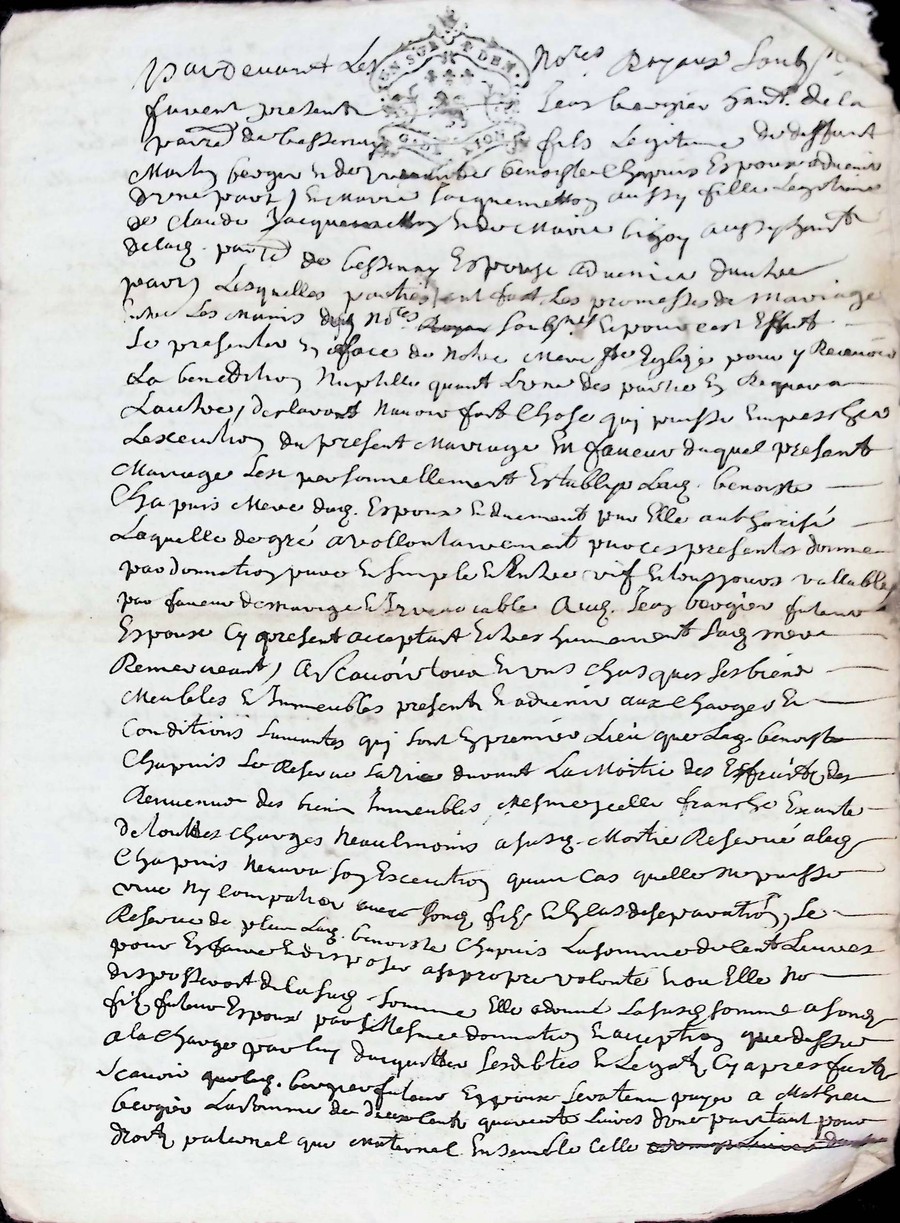 Pardevant Les Nores Royaux Soub
furent present Jean bergier hant. de la
parr. de bessenay fils Legitime de deffunt
bergier Et de benoiste Chapuis Espoux advenir
d'une part Et Marie Jacquemetton aussy fille Legitime
de Claude Jacquemetton Et de Marie aussy hant
de lad. parr. de bessenay Espouse advenir d'autre
part Lesquelles parties ont fait Les promesses de Mariage
Entre Les Mains desd Nores Royaux Soubsnes Et pour cest Effect
Se presenter En face de Notre Mere Ste Eglize pour y Recevoir
La benediction Nuptille quant L'une des partie En Requera
L'autre, declarant Navoir fait Chose qui puisse Empescher
Lexecution du present Mariage En faveur duquel present
Mariage sest personnellement Establye Lad. benoiste
Chapuis Mere dud. Espoux Et duement pour Elle authorisé
Laquelle de gré a vollontairement par ces presentes donne
par donnation pure Et simple Entre vif Et tousjours vallable
par faveur de mariage Et Irrevocable Aud. Jean bergier futeur
Espoux Cy present acceptant Et tres humement sad mere
Remerciant, A Scavoir tous Et uns Chasques ses biens
Meubles Et Immeubles present Et advenir aux Charges Et
Conditions suivantes qui sont En premier Lieu que Lad. benoiste
Chapuis Se Reserve sa vie durant La Moitié des Effruits des
Revenus des biens Immeubles, Mesme Icelle franche Exante
de touttes Charges Neaulmoins a susd. Moitié Reservé a lad
Chapuis Naura son Execution quau Cas quelle ne puisse
vivre Ny Compatir avec Sond fils Et En Cas de separation, Se
Reserve de plus Lad. benoiste Chapuis La somme de Cent Livres
pour En faire Et disposer a sa propre volonté Et ou Elle Ne
disposeroit de la susd. Somme Elle a donné La susd somme a sond
fils futeur Espoux par Mesme donnation Et acception que dessus
a la Charge par luy dacquitter Les debtes Et Legats Cy apres
Scavoir que led. bergier futeur Espoux sera tenu payer a Mathieu
bergier La somme de Deux Cents quarente Livres dune part tant pour
droits paternel que Maternel Ensemble Celle